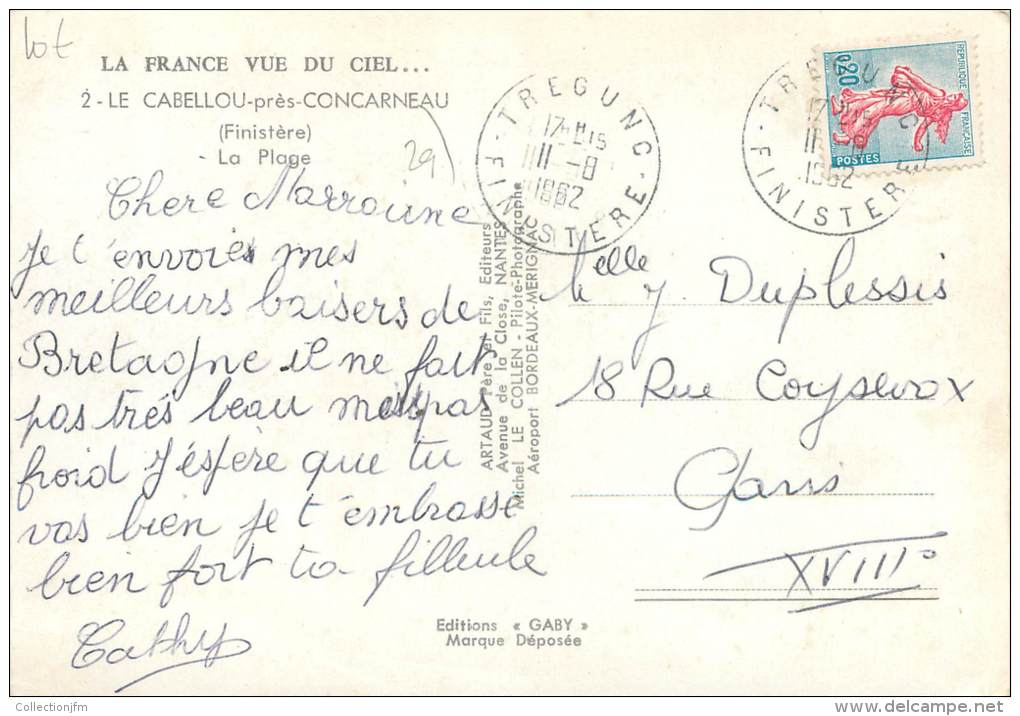 lot
LA FRANCE VUE DU CIEL...
2-LE CABELLOU-près-CONCARNEAU
(Finistère)
- La Plage
29
Chere Marraine
Je t'envoies mes
meilleurs baisers de
Bretagne il ne fait
pas très beau mais pas
froid J'éspère que tu
vas bien je t'émbrasse
bien fort ta filleule
Cathy
TREGUNC
17H15
11-8
1962
FINISTERE
ARTAUD Père et Fils, Editeurs
Avenue de la Close, NANTES
Michel LE COLLEN - Pilote-Photographe
Aéroport BORDEAUX-MERIGNAC
Editions « GABY »
Marque Déposée
TREGUNC
17H15
11-8
1962
FINISTERE
0,20
REPUBLIQUE FRANÇAISE
POSTES
Melle J. Duplessis
18 Rue Coysevox
Paris
XVIII°
Collectionjfm
delcampe.net